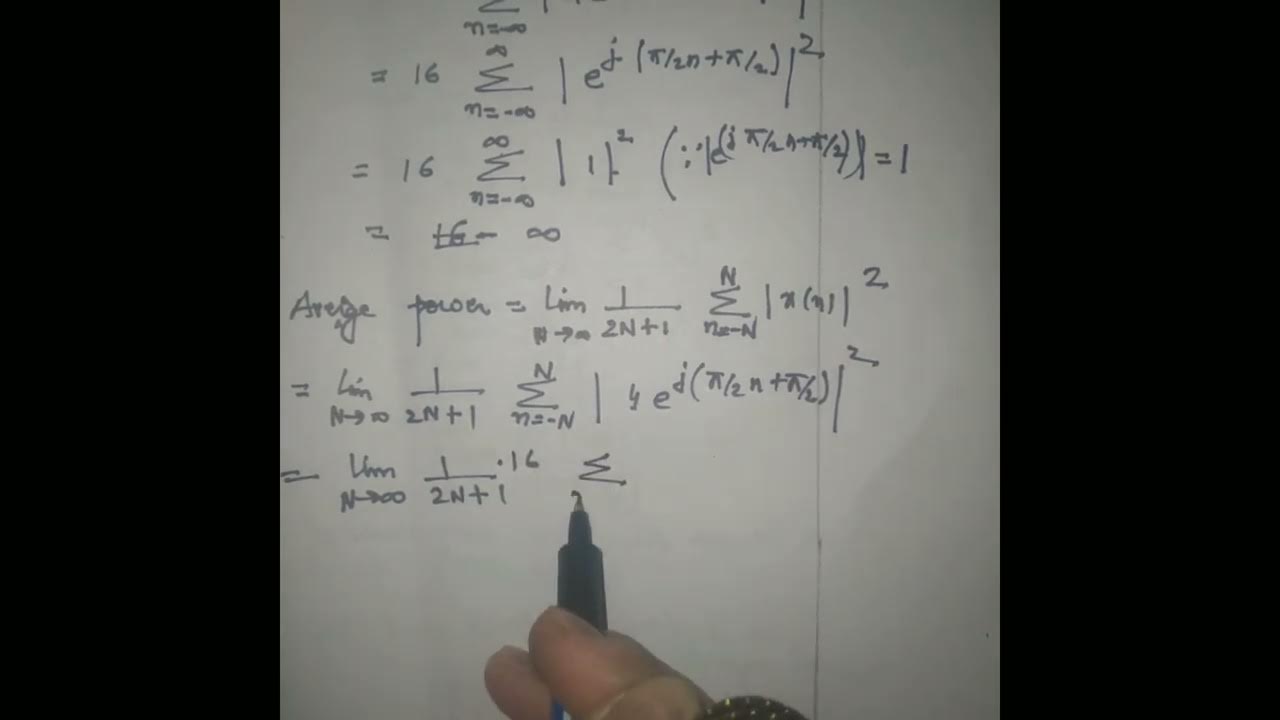 Σ n=-∞ |
= 16 Σ n=-∞ ∞ | e^j (π/2n+π/2) |^2
= 16 Σ n=-∞ ∞ | 1 |^2 (∵ |e^(j π/2 n+π/2)| = 1
= 16 - ∞
Averge power = Lim N→∞ 1/2N+1 Σ n=-N N |x(n)|^2
= Lim N→∞ 1/2N+1 Σ n=-N N | 4 e^j(π/2 n+π/2) |^2
= Lim N→∞ 1/2N+1 .16 Σ